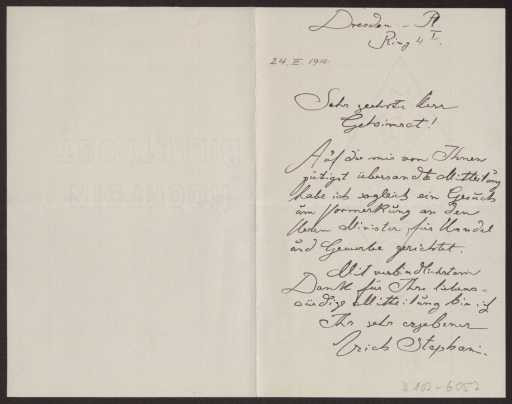 Dresden - A
Ring 4 I.
24. III. 1910.
Sehr geehrter Herr
Geheimrat!
Auf die mir von Ihnen
gütigst übersandte Mitteilung
habe ich sogleich ein Gesuch
um Vormerkung an den
Herrn Minister für Handel
und Gewerbe gerichtet.
Mit verbindlichstem
Dank für Ihre liebens-
würdige Mitteilung bin ich
Ihr sehr ergebener
Erich Stephani.